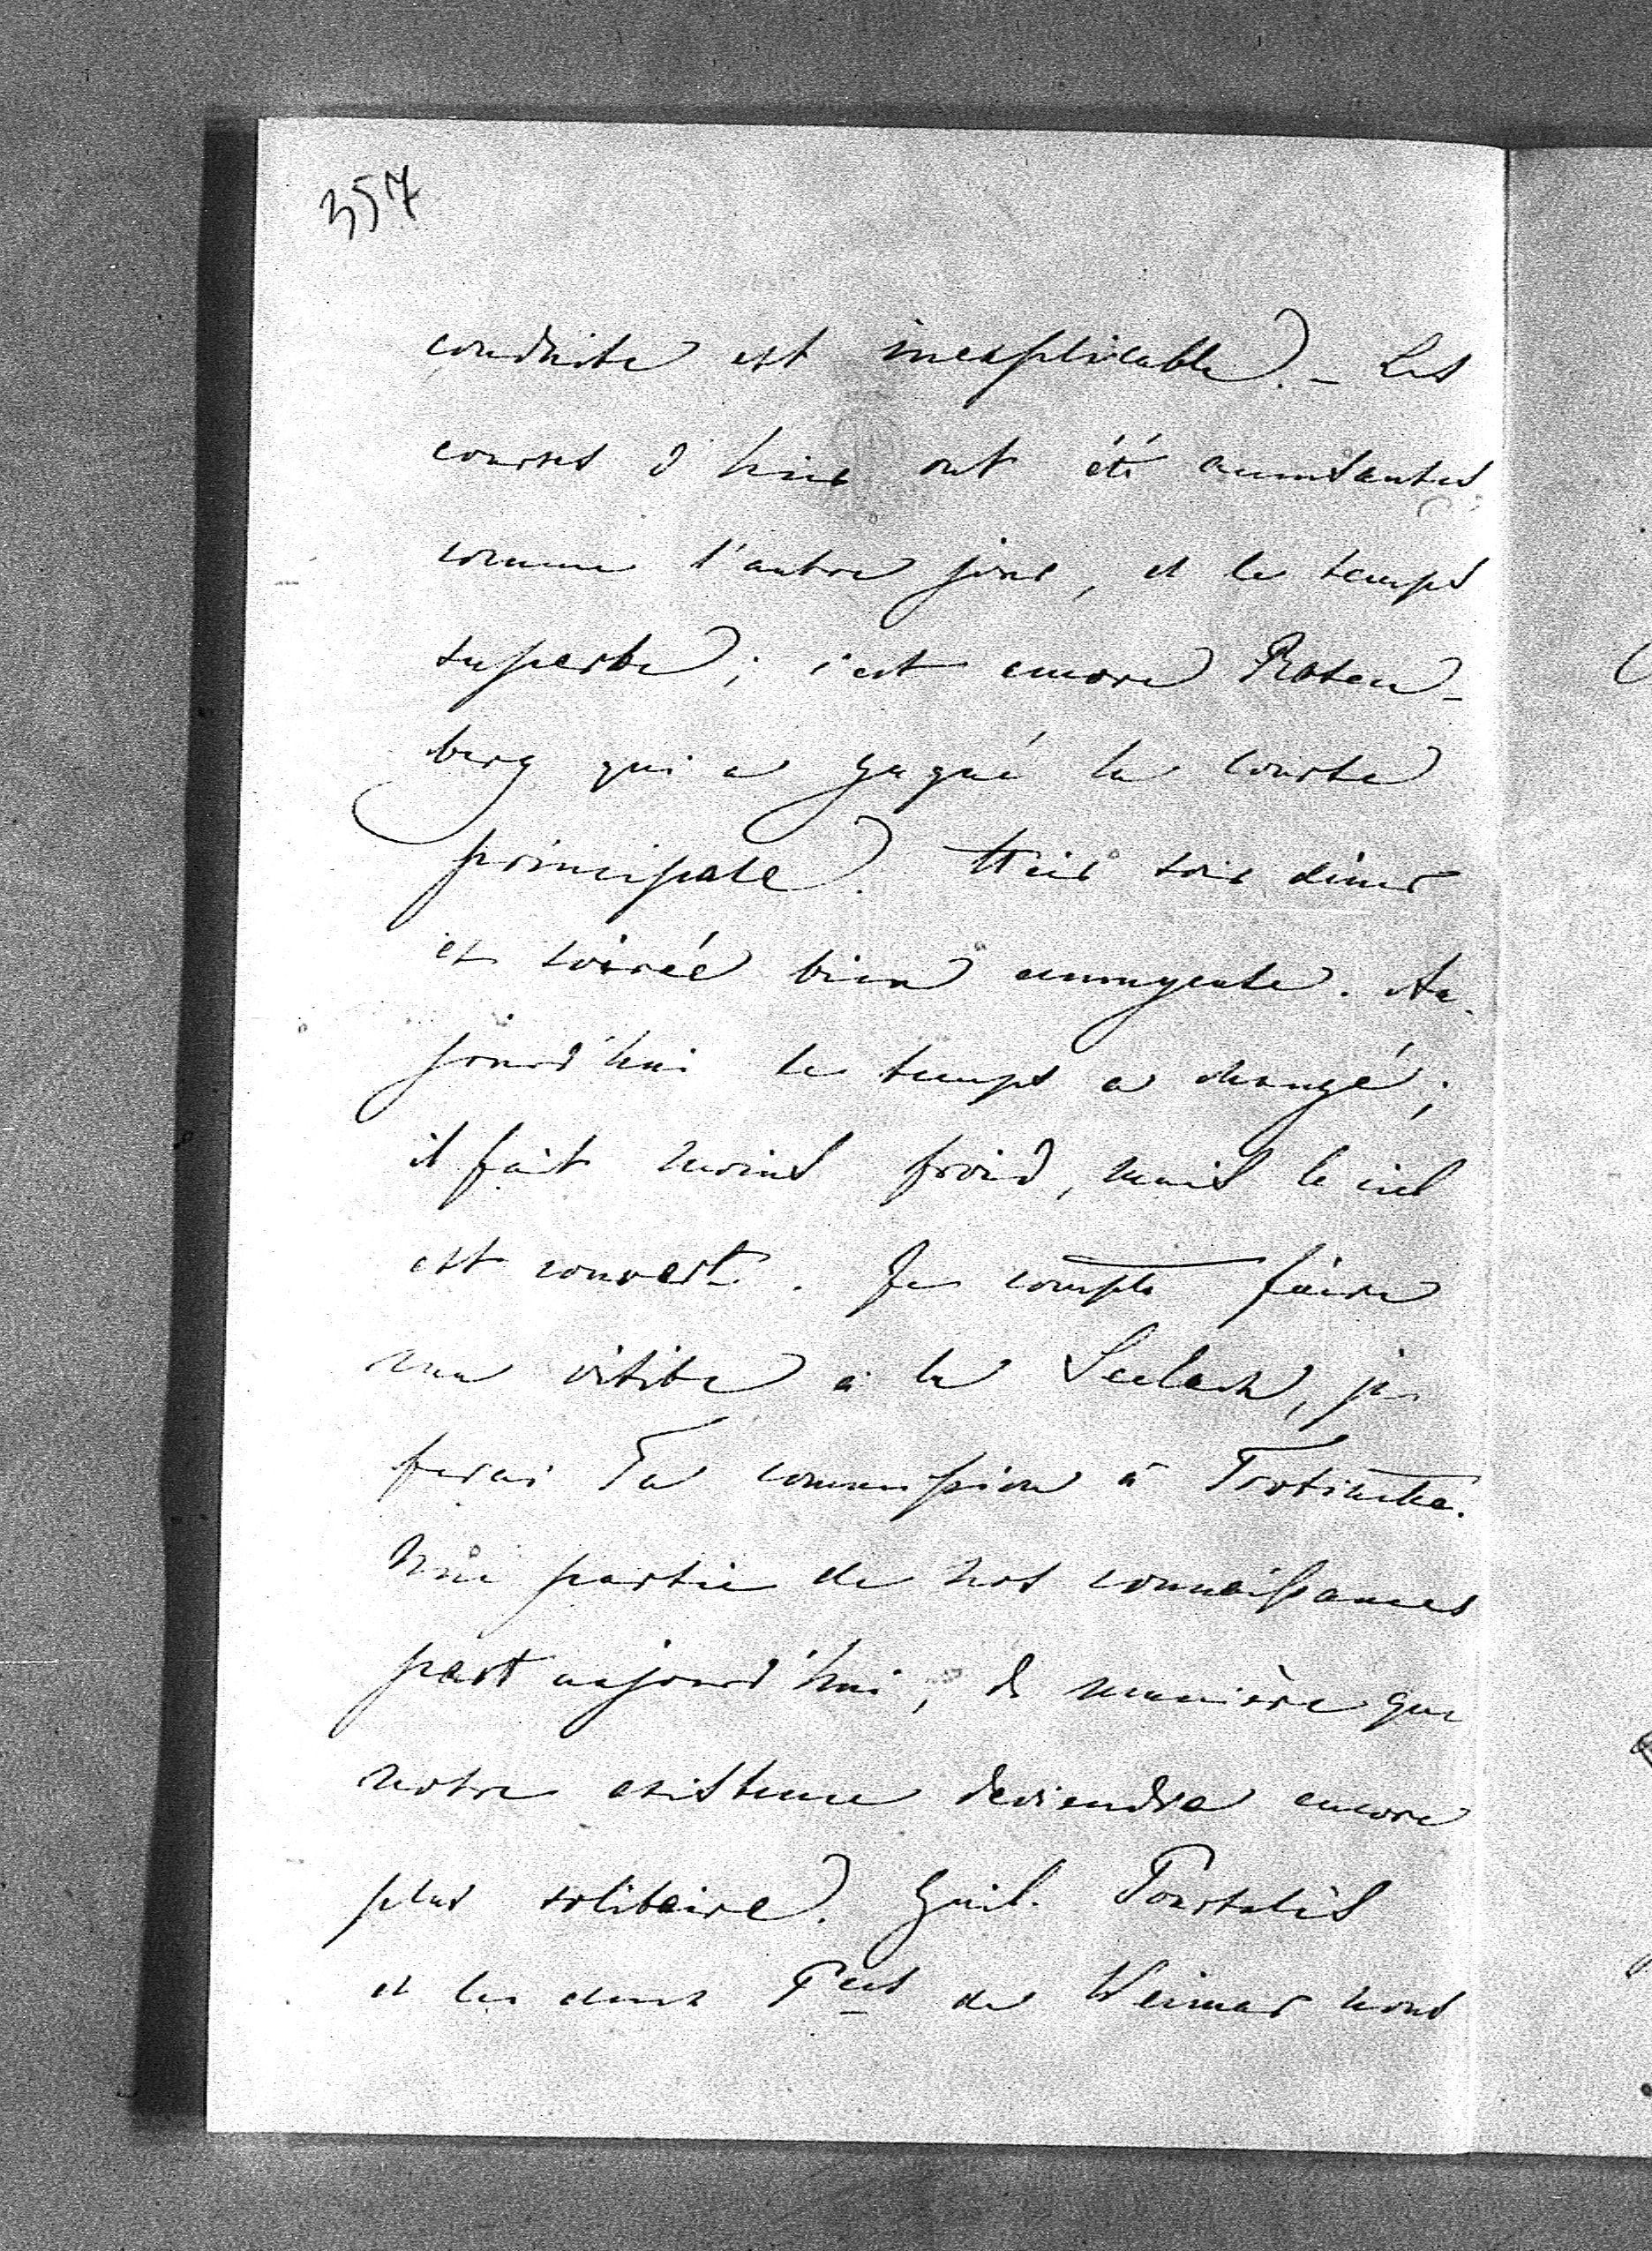 357
conduite est inexplicable. – Les
courses d'hier ont été amusantes
comme l'autre jour, et le temps
superbe; c'est encore Rosen-
berg qui a gagné la course
principale. Hier soir dîner
et soirée bien ennuyeuse. Au-
jourd'hui le temps a changé;
il fait moins froid, mais le ciel
est couvert. Je compte faire
une visite à la je
ferai Ta commission à
Une partie de nos connaissances
part aujourd'hui, de manière que
notre existence deviendra encore
plus solitaire. Guil. Pourtalès
et les deux Pces de Weimar nous